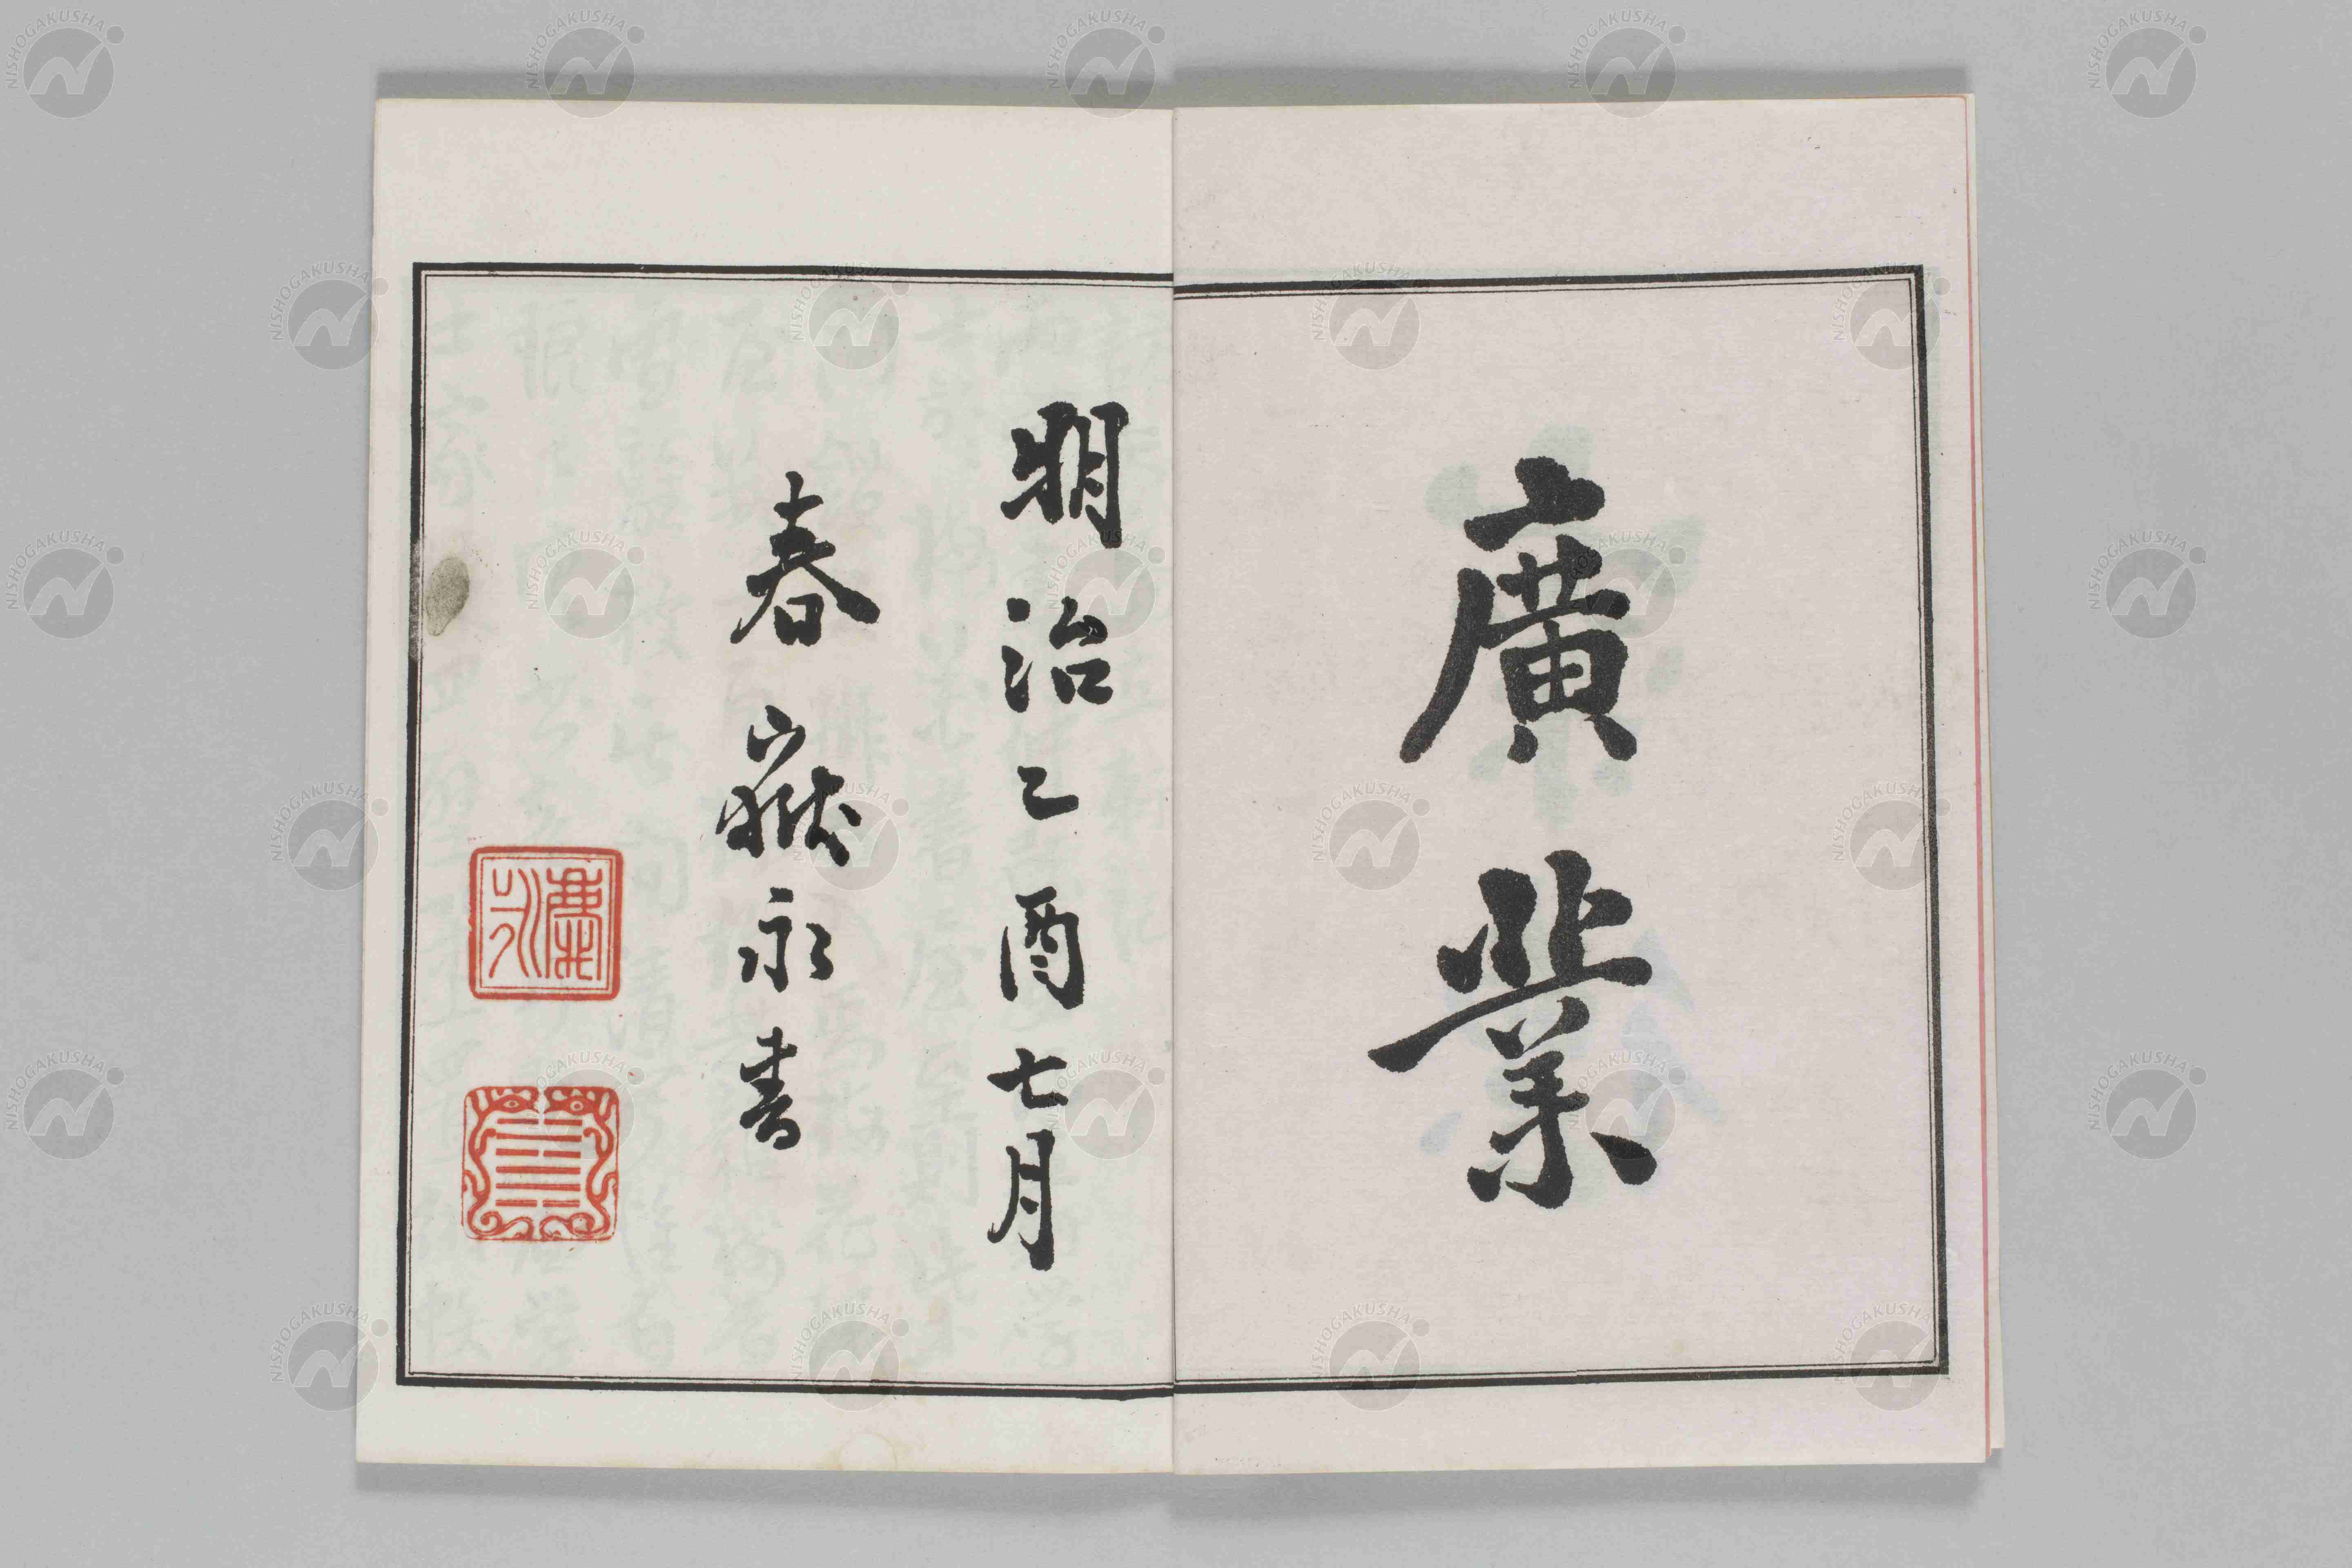 廣業
明治乙酉七月
春嶽永書
慶永
NISHOGAKUSHA